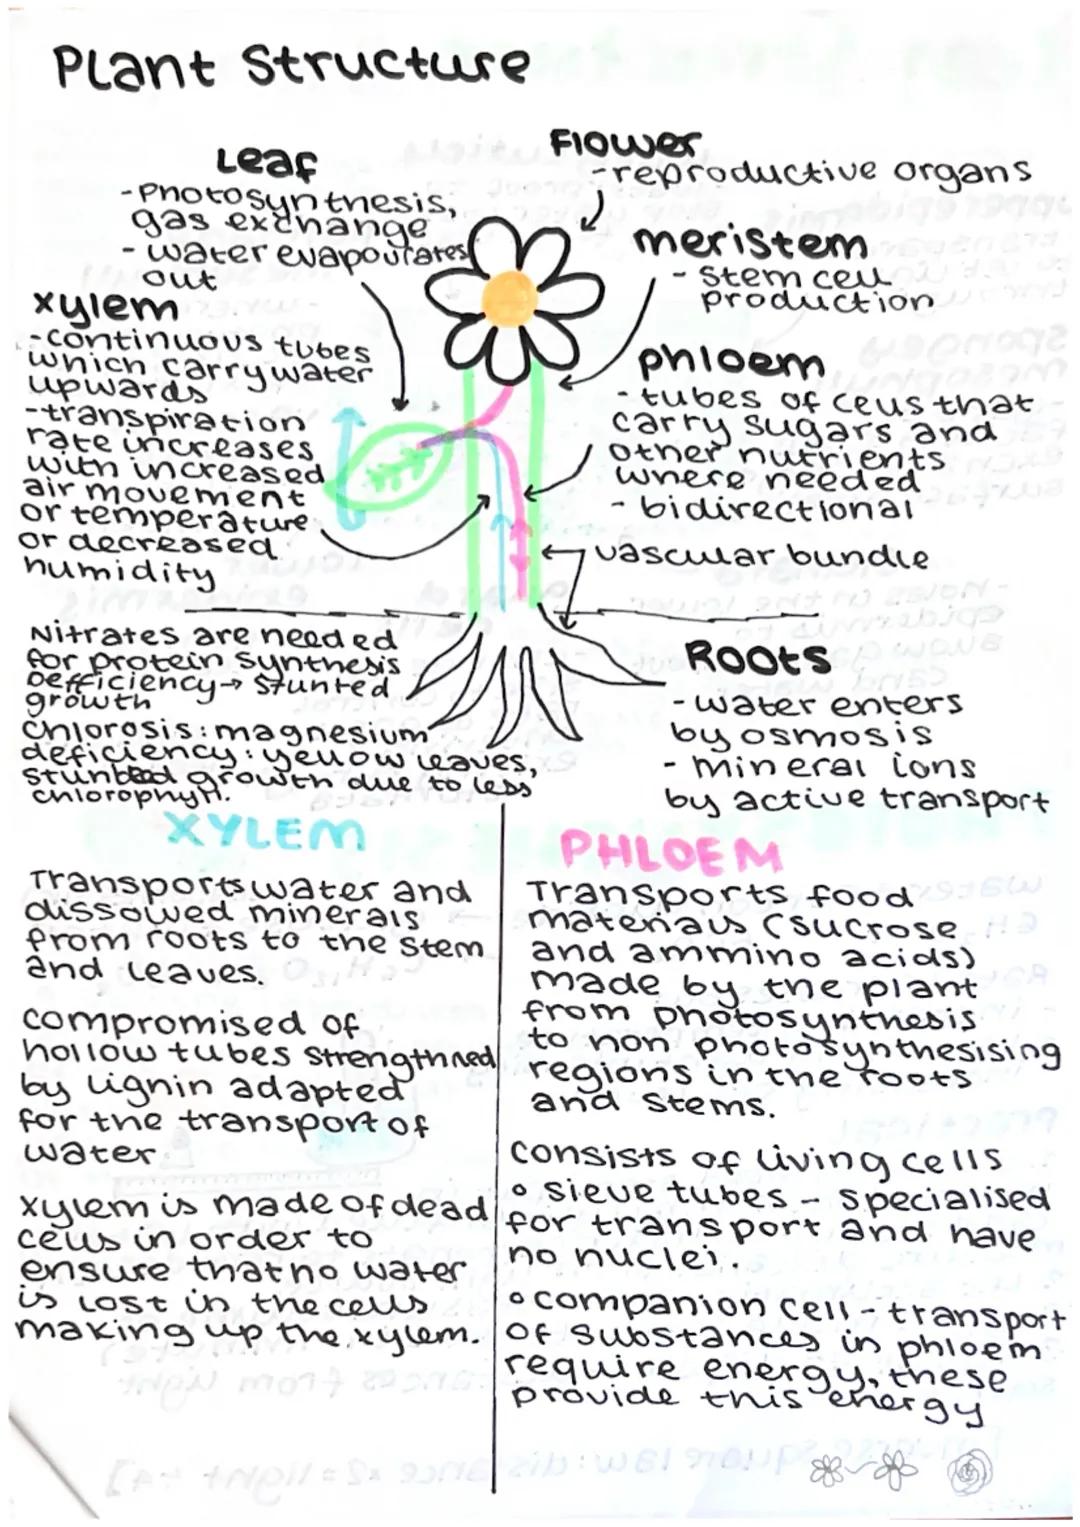 Plant Structure
Leaf
- Photosynthesis,
gas exchange
- water evapourates
out
Flower
- reproductive organs
meristem
- stem cell
production
xylem
- continuous tubes
which carry water
upwards
- transpiration
rate increases
with increased
air movement
or temperature
or decreased
humidity
phloem
- tubes of cells that
carry sugars and
other nutrients
where needed
- bidirectional
vascular bundle
Nitrates are needed
for protein synthesis
Defficiency → stunted
growth
Chlorosis: magnesium
deficiency: yellow leaves,
stunted growth due to less
chlorophyll.
Roots
- water enters
by osmosis
- mineral ions
by active transport
XYLEM
Transports water and
dissolved minerals
from roots to the stem
and leaves.
compromised of
hollow tubes strengthned
by lignin adapted
for the transport of
water
xylem is made of dead
cells in order to
ensure that no water
is lost in the cells
making up the xylem.
PHLOEM
Transports food
materials (sucrose
and ammino acids)
made by the plant
from photosynthesis
to non photosynthesising
regions in the roots
and stems.
consists of living cells
• sieve tubes - specialised
for transport and have
no nuclei.
• companion cell - transport
of substances in phloem
require energy, these
provide this energy